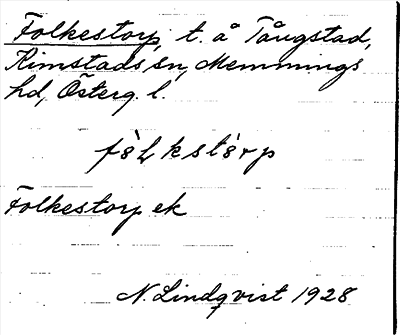 Folkestorp, t. å Tångstad,
Kimstads sn, Memmings
hd, Österg. l.
fò̀ḷkstò̀rp
Folkestorp ek
N. Lindqvist 1928